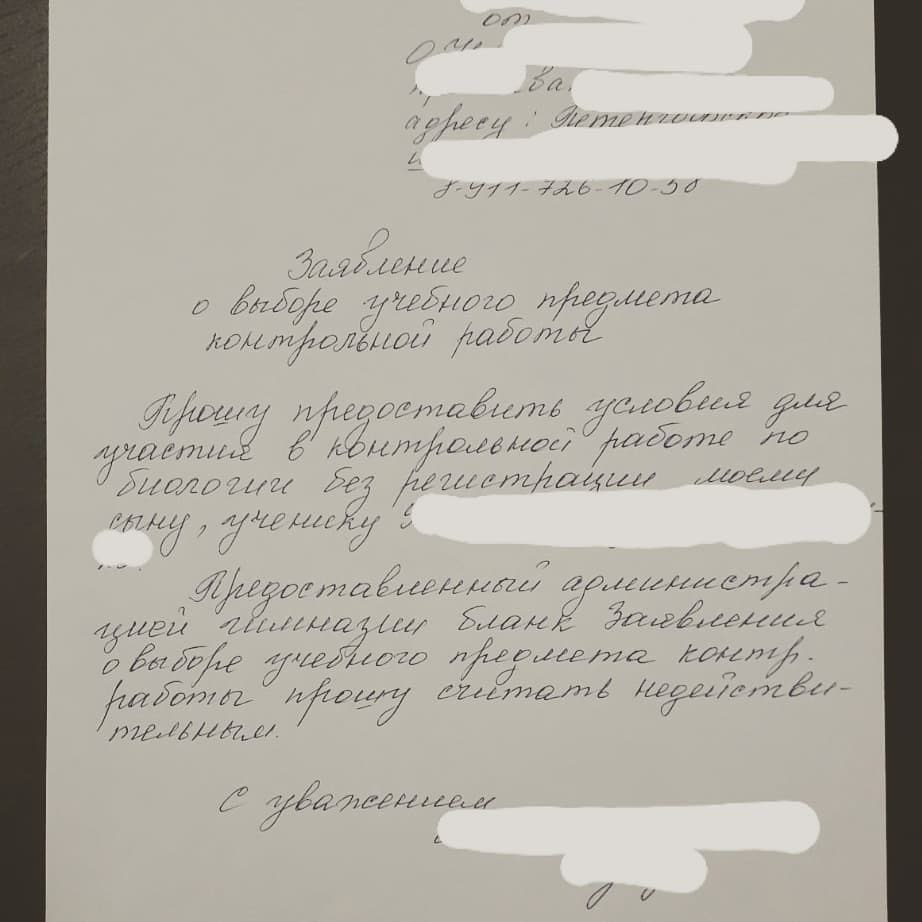 от
адресу:
Заявление
о выборе учебного предмета
контрольной работы
Прошу предоставить условия для
участия в контрольной работе по
биологии без регистрации моему
сыну, ученику
Предоставленный администра-
цией гимназии бланк Заявления
о выборе учебного предмета контр.
работы прошу считать недействи-
тельным.
С уважением